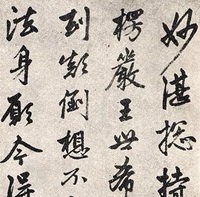 妙湛揔持
楞嚴王世希
劫顛倒想不
法身願今得